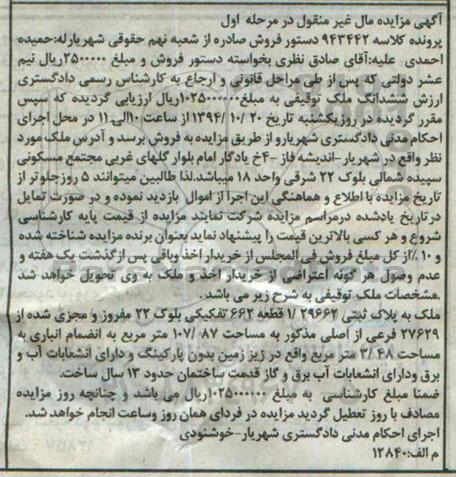 آگهی مزایده مال غیر منقول در مرحله اول
پرونده کلاسه ۹۴۳۴۴۲ دستور فروش صادره از شعبه نهم حقوقی شهریارله:حمیده
احمدی علیه:آقای صادق نظری بخواسته دستور فروش و مبلغ ۲۵۰۰۰۰۰ریال نیم
عشر دولتی که پس از طی مراحل قانونی و ارجاع به کارشناس رسمی دادگستری
ارزش ششدانگ ملک توقیفی به مبلغ۱۰۲۵۰۰۰۰۰۰ریال ارزیابی گردیده که سپس
مقرر گردیده در روزیکشنبه تاریخ ۲۰ /۱۰ /۱۳۹۴ از ساعت ۱۰الی۱۱ در محل اجرای
احکام مدنی دادگستری شهریارو از طریق مزایده به فروش برسد و آدرس ملک مورد
نظر واقع در شهریار -اندیشه فاز -۴خ یادگار امام بلوار گلهای غربی مجتمع مسکونی
سپیده شمالی بلوک ۲۲ شرقی واحد ۱۸ میباشد.لذا طالبین میتوانند ۵ روزجلوتر از
تاریخ مزایده با اطلاع و هماهنگی این اجرا از اموال بازدید نموده و در صورت تمایل
درتاریخ یادشده درمراسم مزایده شرکت نمایند مزایده از قیمت پایه کارشناسی
شروع و هر کسی بالاترین قیمت را پیشنهاد نماید بعنوان برنده مزایده شناخته شده
و ۱۰ ٪از کل مبلغ فروش فی المجلس از خریدار اخذ وباقی پس ازگذشت یک هفته و
عدم وصول هر گونه اعتراضی از خریدار اخذ و ملک به وی تحویل خواهد شد
.مشخصات ملک توقیفی به شرح زیر می باشد.
ملک به پلاک ثبتی ۲۹۶۶۲ /۱ قطعه ۶۶۲ تفکیکی بلوک ۲۲ مفروز و مجزی شده از
۲۷۶۲۹ فرعی از اصلی مذکور به مساحت ۸۷ /۱۰۷ متر مربع به انضمام انباری به
مساحت ۴۸ /۳ متر مربع واقع در زیز زمین بدون پارکینگ و دارای انشعابات آب و
برق ودارای انشعابات آب برق و گاز قدمت ساختمان حدود ۱۳ سال ساخت.
ضمنا مبلغ کارشناسی به مبلغ ۱۰۲۵۰۰۰۰۰۰ریال می باشد و چنانچه روز مزایده
مصادف با روز تعطیل گردید مزایده در فردای همان روز وساعت انجام خواهد شد.
اجرای احکام مدنی دادگستری شهریار-خوشنودی
م الف:۱۲۸۴۰